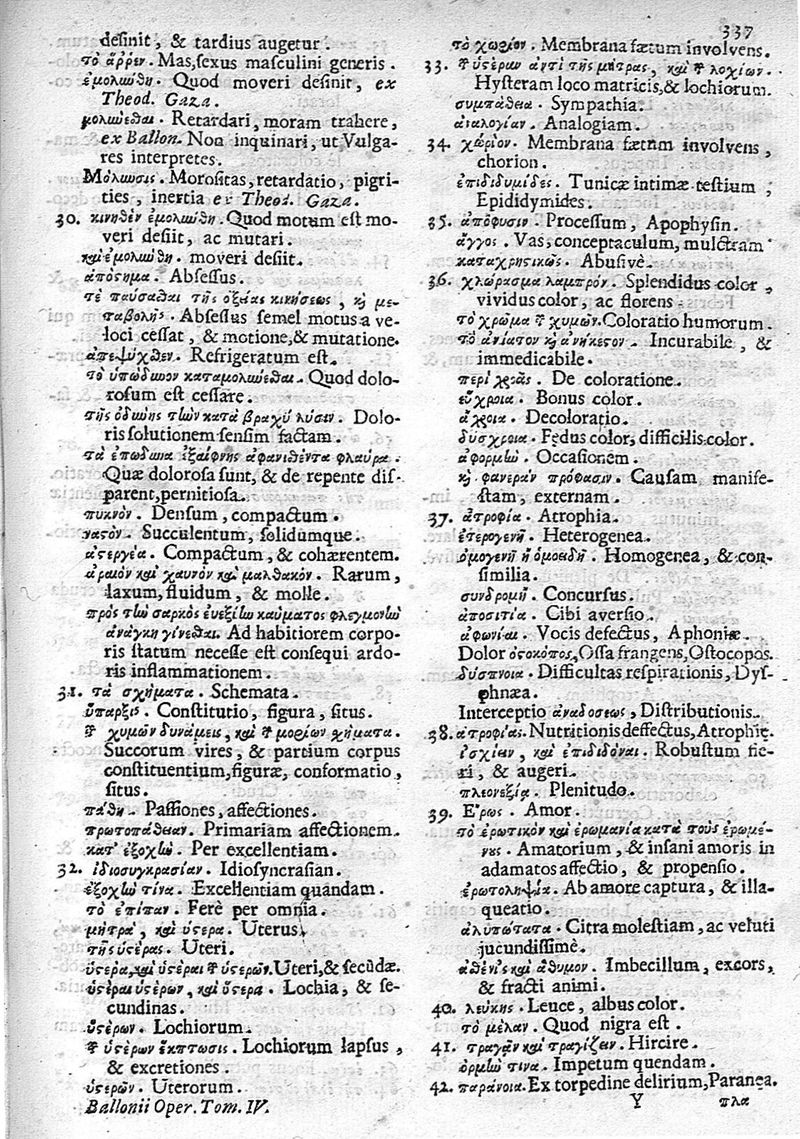 337
desinit, & tardius augetur.
τὸ ἄῤῥεν. Mas, sexus masculini generis.
ἐμολώθη. Quod moveri desinit, ex
Theod. Gaza.
Retardari, moram trahere,
ex Ballon. Non inquinari, ut Vulga-
res interpretes.
Μόλωσις. Morositas, retardatio, pigri-
ties, inertia ex Theod. Gaza.
30. κινηθὲν ἐμολώθη. Quod motum est mo-
veri desiit, ac mutari.
καὶ ἐμολώθη. moveri desiit.
ἀπόστημα. Absessus.
τὲ παύσασθαι τῆς ὀξείας κινήσεως, κỳ με-
ταβολῆς. Absessus semel motus a ve-
loci cessat, & motione, & mutatione.
Refrigeratum est.
Quod dolo-
rosum est cessare.
τῆς ὀδύνης τὴν κατὰ βραχὺ λύσιν. Dolo-
ris solutionem sensim factam.
τὰ ἐπώδυνα ἐξαίφνης ἀφανιθέντα φλαῦρα.
Quæ dolorosa sunt, & de repente dis-
parent, pernitiosa.
πυκνὸν. Densum, compactum.
ναστὸν. Succulentum, solidumque.
Compactum, & cohærentem.
ἀραιὸν καὶ χαυνὸν καὶ μαλθακόν. Rarum,
laxum, fluidum, & molle.
πρὸς τὴν σαρκὸς εὐεξίην καύματος φλεγμονὴν
ἀνάγκη γίνεσθαι. Ad habitiorem corpo-
ris statum necesse est consequi ardo-
ris inflammationem.
31. τὰ σχήματα. Schemata.
ὕπαρξις. Constitutio, figura, situs.
τῶν χυμῶν δυνάμεις, καὶ τῶν μορίων χήματα.
Succorum vires, & partium corpus
constituentium, figuræ, conformatio,
situs.
πάθη. Passiones, affectiones.
πρωτοπάθειαν. Primariam affectionem.
κατ' ἐξοχὴν. Per excellentiam.
32. ἰδιοσυγκρασίαν. Idiosyncrasian.
ἐξοχὴν τινα. Excellentiam quandam.
τὸ ἐπίπαν. Ferè per omnia.
μήτρα, καὶ ὑστερα. Uterus.
τῆς ὑστέρας. Uteri.
ὑστερα, καὶ ὑστέραι τῶν ὑστερῶν. Uteri, & secūdæ.
ὑστέραι ὑστέρων, καὶ ὕστερα. Lochia, & se-
cundinas.
ὑστέρων. Lochiorum.
τῶν ὑστέρων ἔκπτωσις. Lochiorum lapsus,
& excretiones.
ὑστερῶν. Uterorum.
Ballonii Oper. Tom. IV.
τὸ χωρίον. Membrana fætum involvens.
33. τῶν ὑστέρων ἀντὶ τῆς μήτρας, καὶ τῶν λοχίων.
Hysteram loco matricis, & lochiorum.
συμπάθεια. Sympathia.
ἀναλογίαν. Analogiam.
34. χώριον. Membrana fætum involvens,
chorion.
ἐπιδιδυμίδες. Tunicæ intimæ testium,
Epididymides.
35. ἀπόφυσιν. Processum, Apophysin.
ἄγγος. Vas, conceptaculum, mulctram
καταχρηστικῶς. Abusivè.
36. χλώρασμα λαμπρόν. Splendidus color,
vividus color, ac florens.
τὸ χρῶμα τῶν χυμῶν. Coloratio humorum.
τὸ ἀνίατον κỳ ἀνήκεστον. Incurabile, &
immedicabile.
περὶ χροιᾶς. De coloratione.
εὔχροια. Bonus color.
ἄχροια. Decoloratio.
δύσχροια. Fędus color, difficilis color.
ἀφορμὴν. Occasionem.
κỳ φανερὰν πρόφασιν. Causam manife-
stam, externam.
37. ἀτροφία. Atrophia.
ἑτερογενῆ. Heterogenea.
ὁμογενῆ ἢ ὁμοειδῆ. Homogenea, & con-
similia.
συνδρομὴ. Concursus.
ἀποσιτία. Cibi aversio.
ἀφωνίαι. Vocis defectus, Aphoniæ.
Dolor ὀστοκόπος, Ossa frangens, Ostocopos.
δύσπνοια. Difficultas respirationis, Dys-
phnæa.
Interceptio ἀναδοσεως, Distributionis.
38. ἀτροφίαι. Nutritionis deffectus, Atrophię.
ἰσχύειν, καὶ ἐπιδιδόναι. Robustum fie-
ri, & augeri.
πλεονεξία. Plenitudo.
39. Ε῎ρως. Amor.
τὸ ἐρωτικὸν καὶ ἐρωμανία κατὰ τοὺς ἐρωμέ-
νους. Amatorium, & insani amoris in
adamatos affectio, & propensio.
ἐρωτοληψία. Ab amore captura, & illa-
queatio.
ἀλυπότατα. Citra molestiam, ac veluti
jucundissimè.
ἀθενὲς καὶ ἄθυμον. Imbecillum, excors,
& fracti animi.
40. λεύκης. Leuce, albus color.
τὸ μέλαν. Quod nigra est.
41. τραγᾶν καὶ τραγίζειν. Hircire.
ὁρμὴν τινα. Impetum quendam.
42. παράνοια. Ex torpedine delirium, Paranęa.
Y πλα